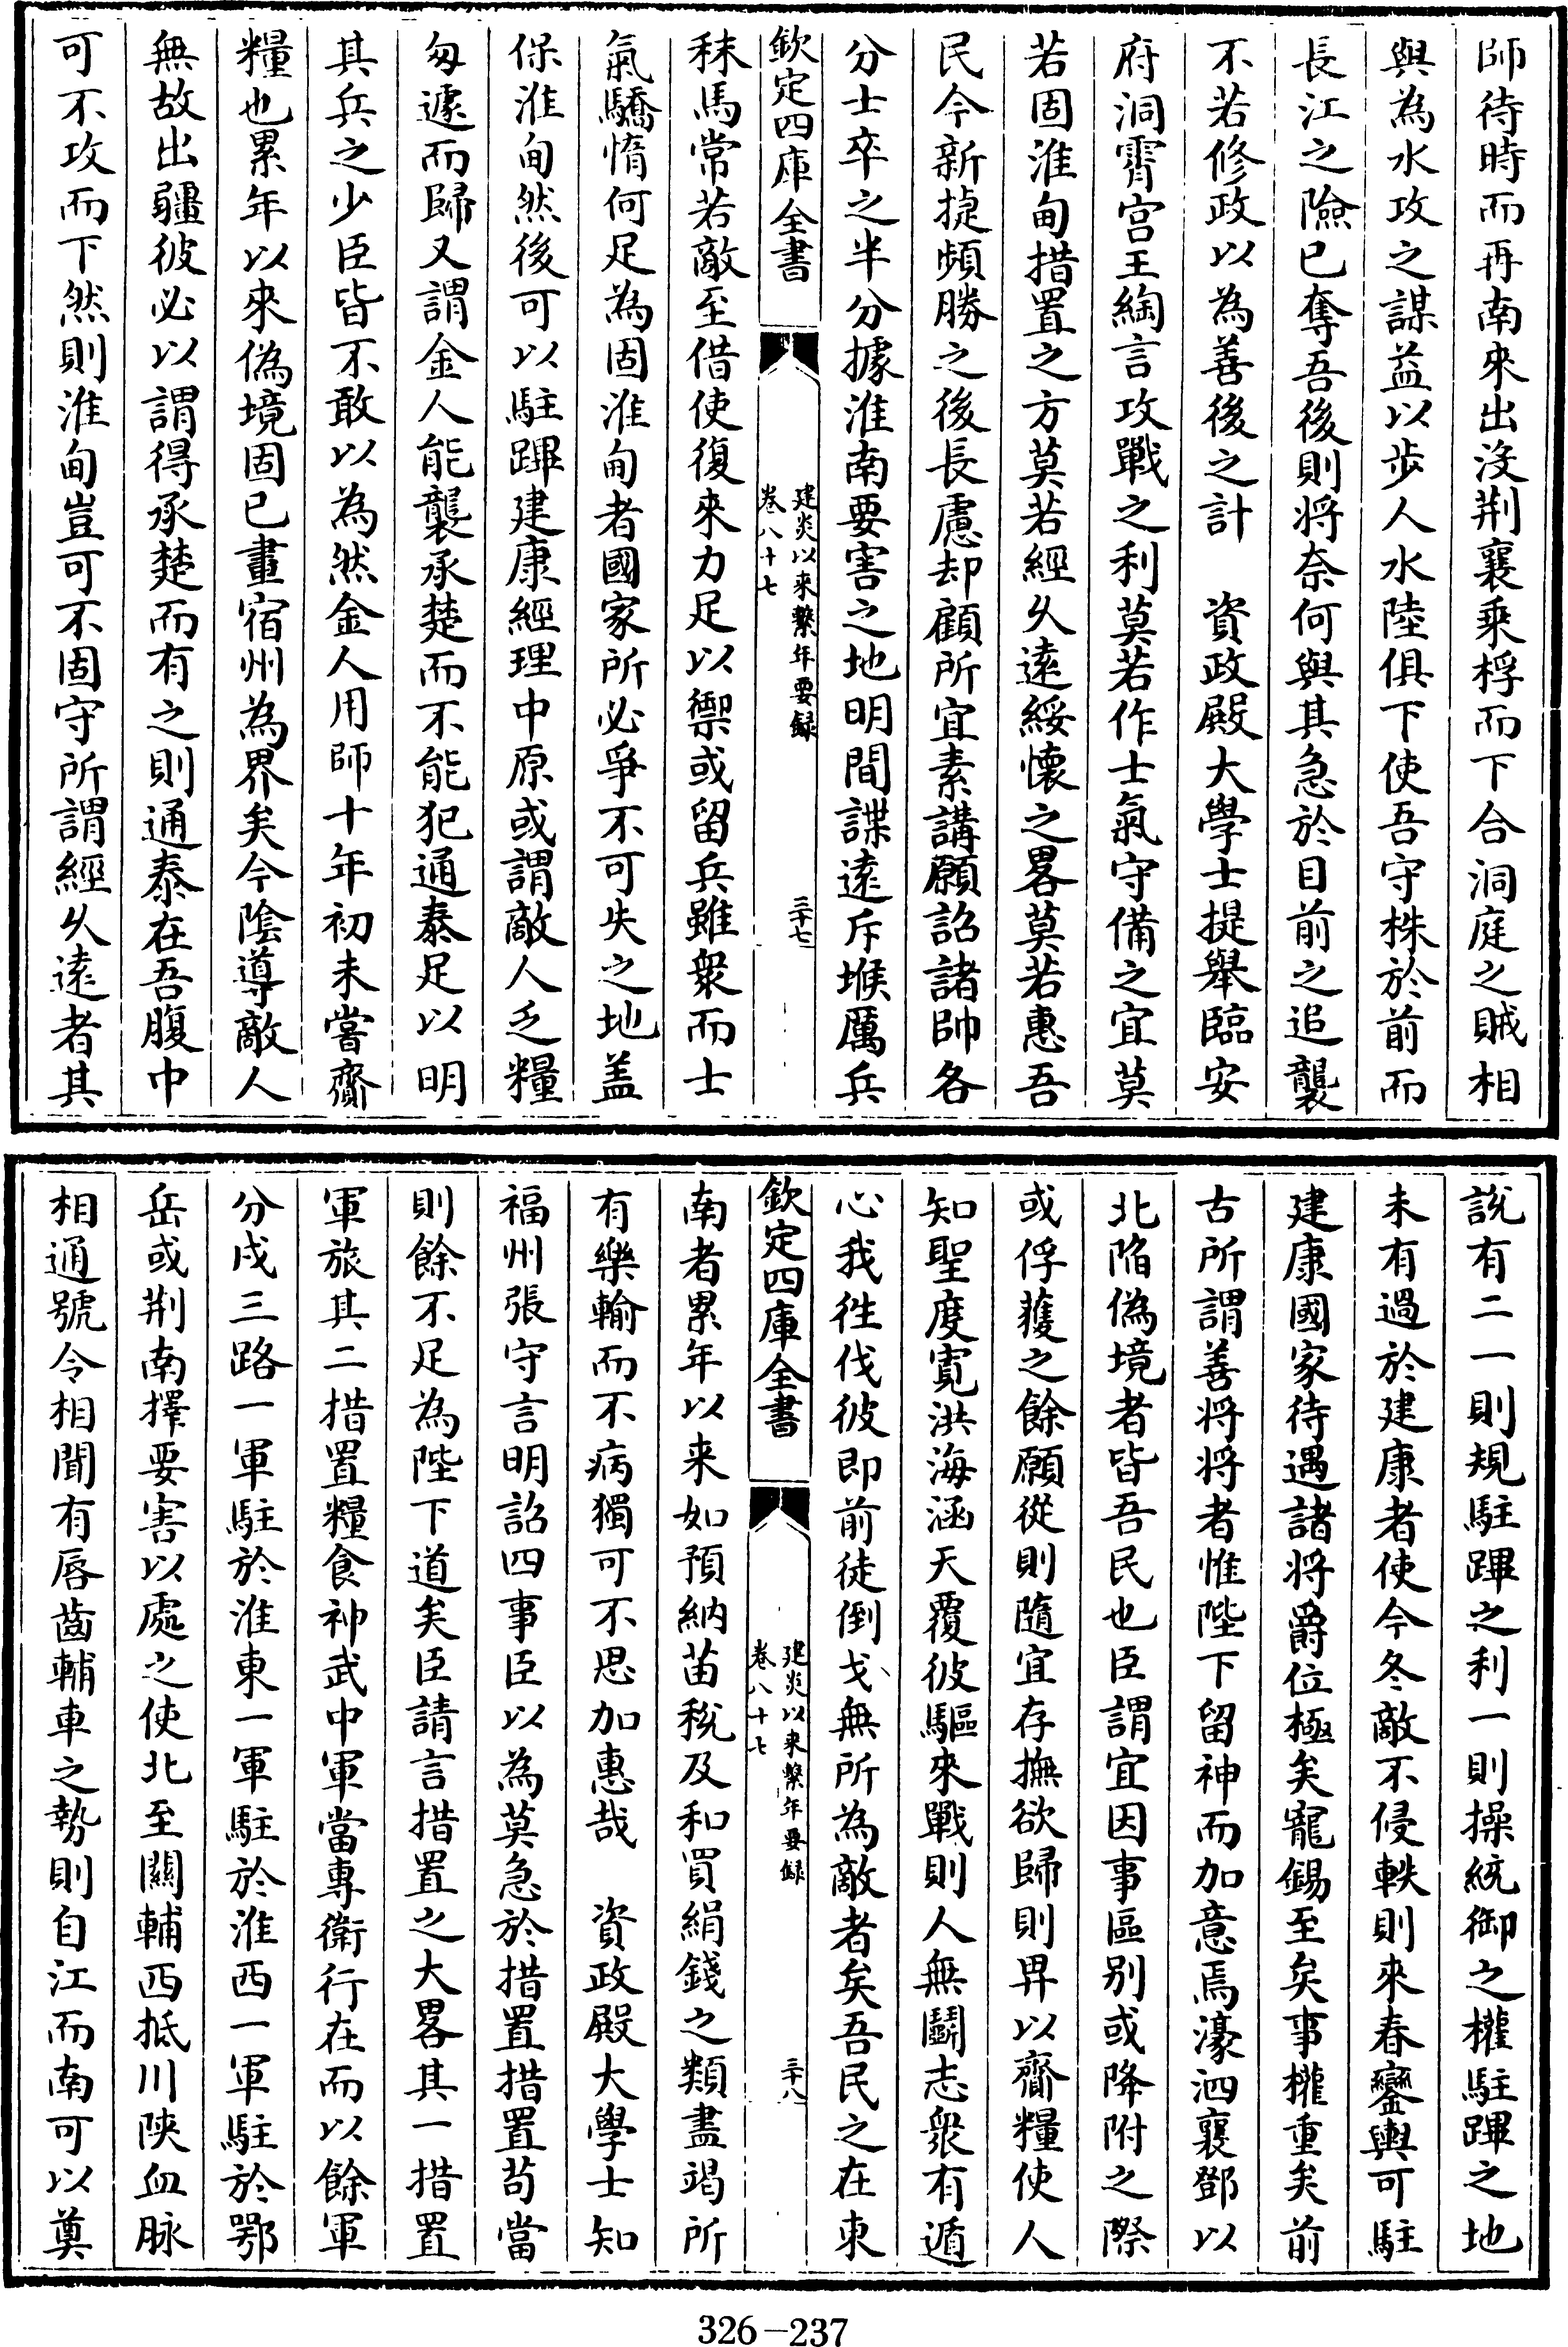 師待時而再南來出沒荆襄乘桴而下合洞庭之賊相
與為水攻之謀益以步人水陸俱下使吾守株於前而
長江之險已奪吾後則將奈何與其急於目前之追襲
不若修政以為善後之計　資政殿大學士提舉臨安
府洞霄宮王綯言攻戰之利莫若作士氣守備之宜莫
若固淮甸措置之方莫若經久遠綏懷之畧莫若惠吾
民今新捷頻勝之後長慮却顧所宜素講願詔諸帥各
分士卒之半分據淮南要害之地明間諜遠斥堠厲兵
欽定四庫全書
建炎以來繫年要録
卷八十七
三十七
秣馬常若敵至借使復來力足以禦或留兵雖衆而士
氣驕惰何足為固淮甸者國家所必爭不可失之地盖
保淮甸然後可以駐蹕建康經理中原或謂敵人乏糧
匆遽而歸又謂金人能襲承楚而不能犯通泰足以明
其兵之少臣皆不敢以為然金人用師十年初未嘗齎
糧也累年以來偽境固已畫宿州為界矣今陰導敵人
無故出疆彼必以謂得承楚而有之則通泰在吾腹中
可不攻而下然則淮甸豈可不固守所謂經久遠者其
說有二一則規駐蹕之利一則操統御之權駐蹕之地
未有過於建康者使今冬敵不侵軼則來春鑾輿可駐
建康國家待遇諸將爵位極矣寵錫至矣事權重矣前
古所謂善將將者惟陛下留神而加意焉濠泗襄鄧以
北陷偽境者皆吾民也臣謂宜因事區别或降附之際
或俘獲之餘願從則隨宜存撫欲歸則畀以齎糧使人
知聖度寛洪海涵天覆彼驅來戰則人無鬬志衆有遁
心我徃伐彼即前徒倒戈無所為敵者矣吾民之在東
欽定四庫全書
建炎以來繫年要録
卷八十七
三十八
南者累年以来如預納苗稅及和買絹錢之類盡竭所
有樂輸而不病獨可不思加惠哉　資政殿大學士知
福州張守言明詔四事臣以為莫急於措置措置苟當
則餘不足為陛下道矣臣請言措置之大畧其一措置
軍旅其二措置糧食神武中軍當專衞行在而以餘軍
分戍三路一軍駐於淮東一軍駐於淮西一軍駐於鄂
岳或荆南擇要害以處之使北至關輔西抵川陜血脉
相通號令相聞有唇齒輔車之勢則自江而南可以奠
326-237